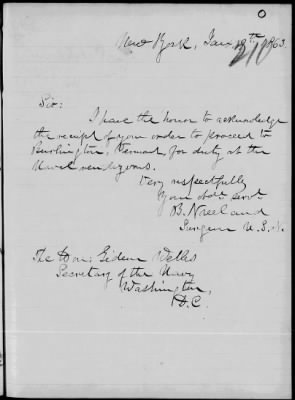 O
New York, Jan 19th 1863.
210
Sir:
I have the honor to acknowledge
the receipt of your order to proceed to
Burlington, Vermont, for duty at the
Naval rendezvous.
Very respectfully
Your obdt servt
B. Vreeland
Surgeon U.S.N.
The Hon: Gideon Welles
Secretary of the Navy
Washington,
D.C.